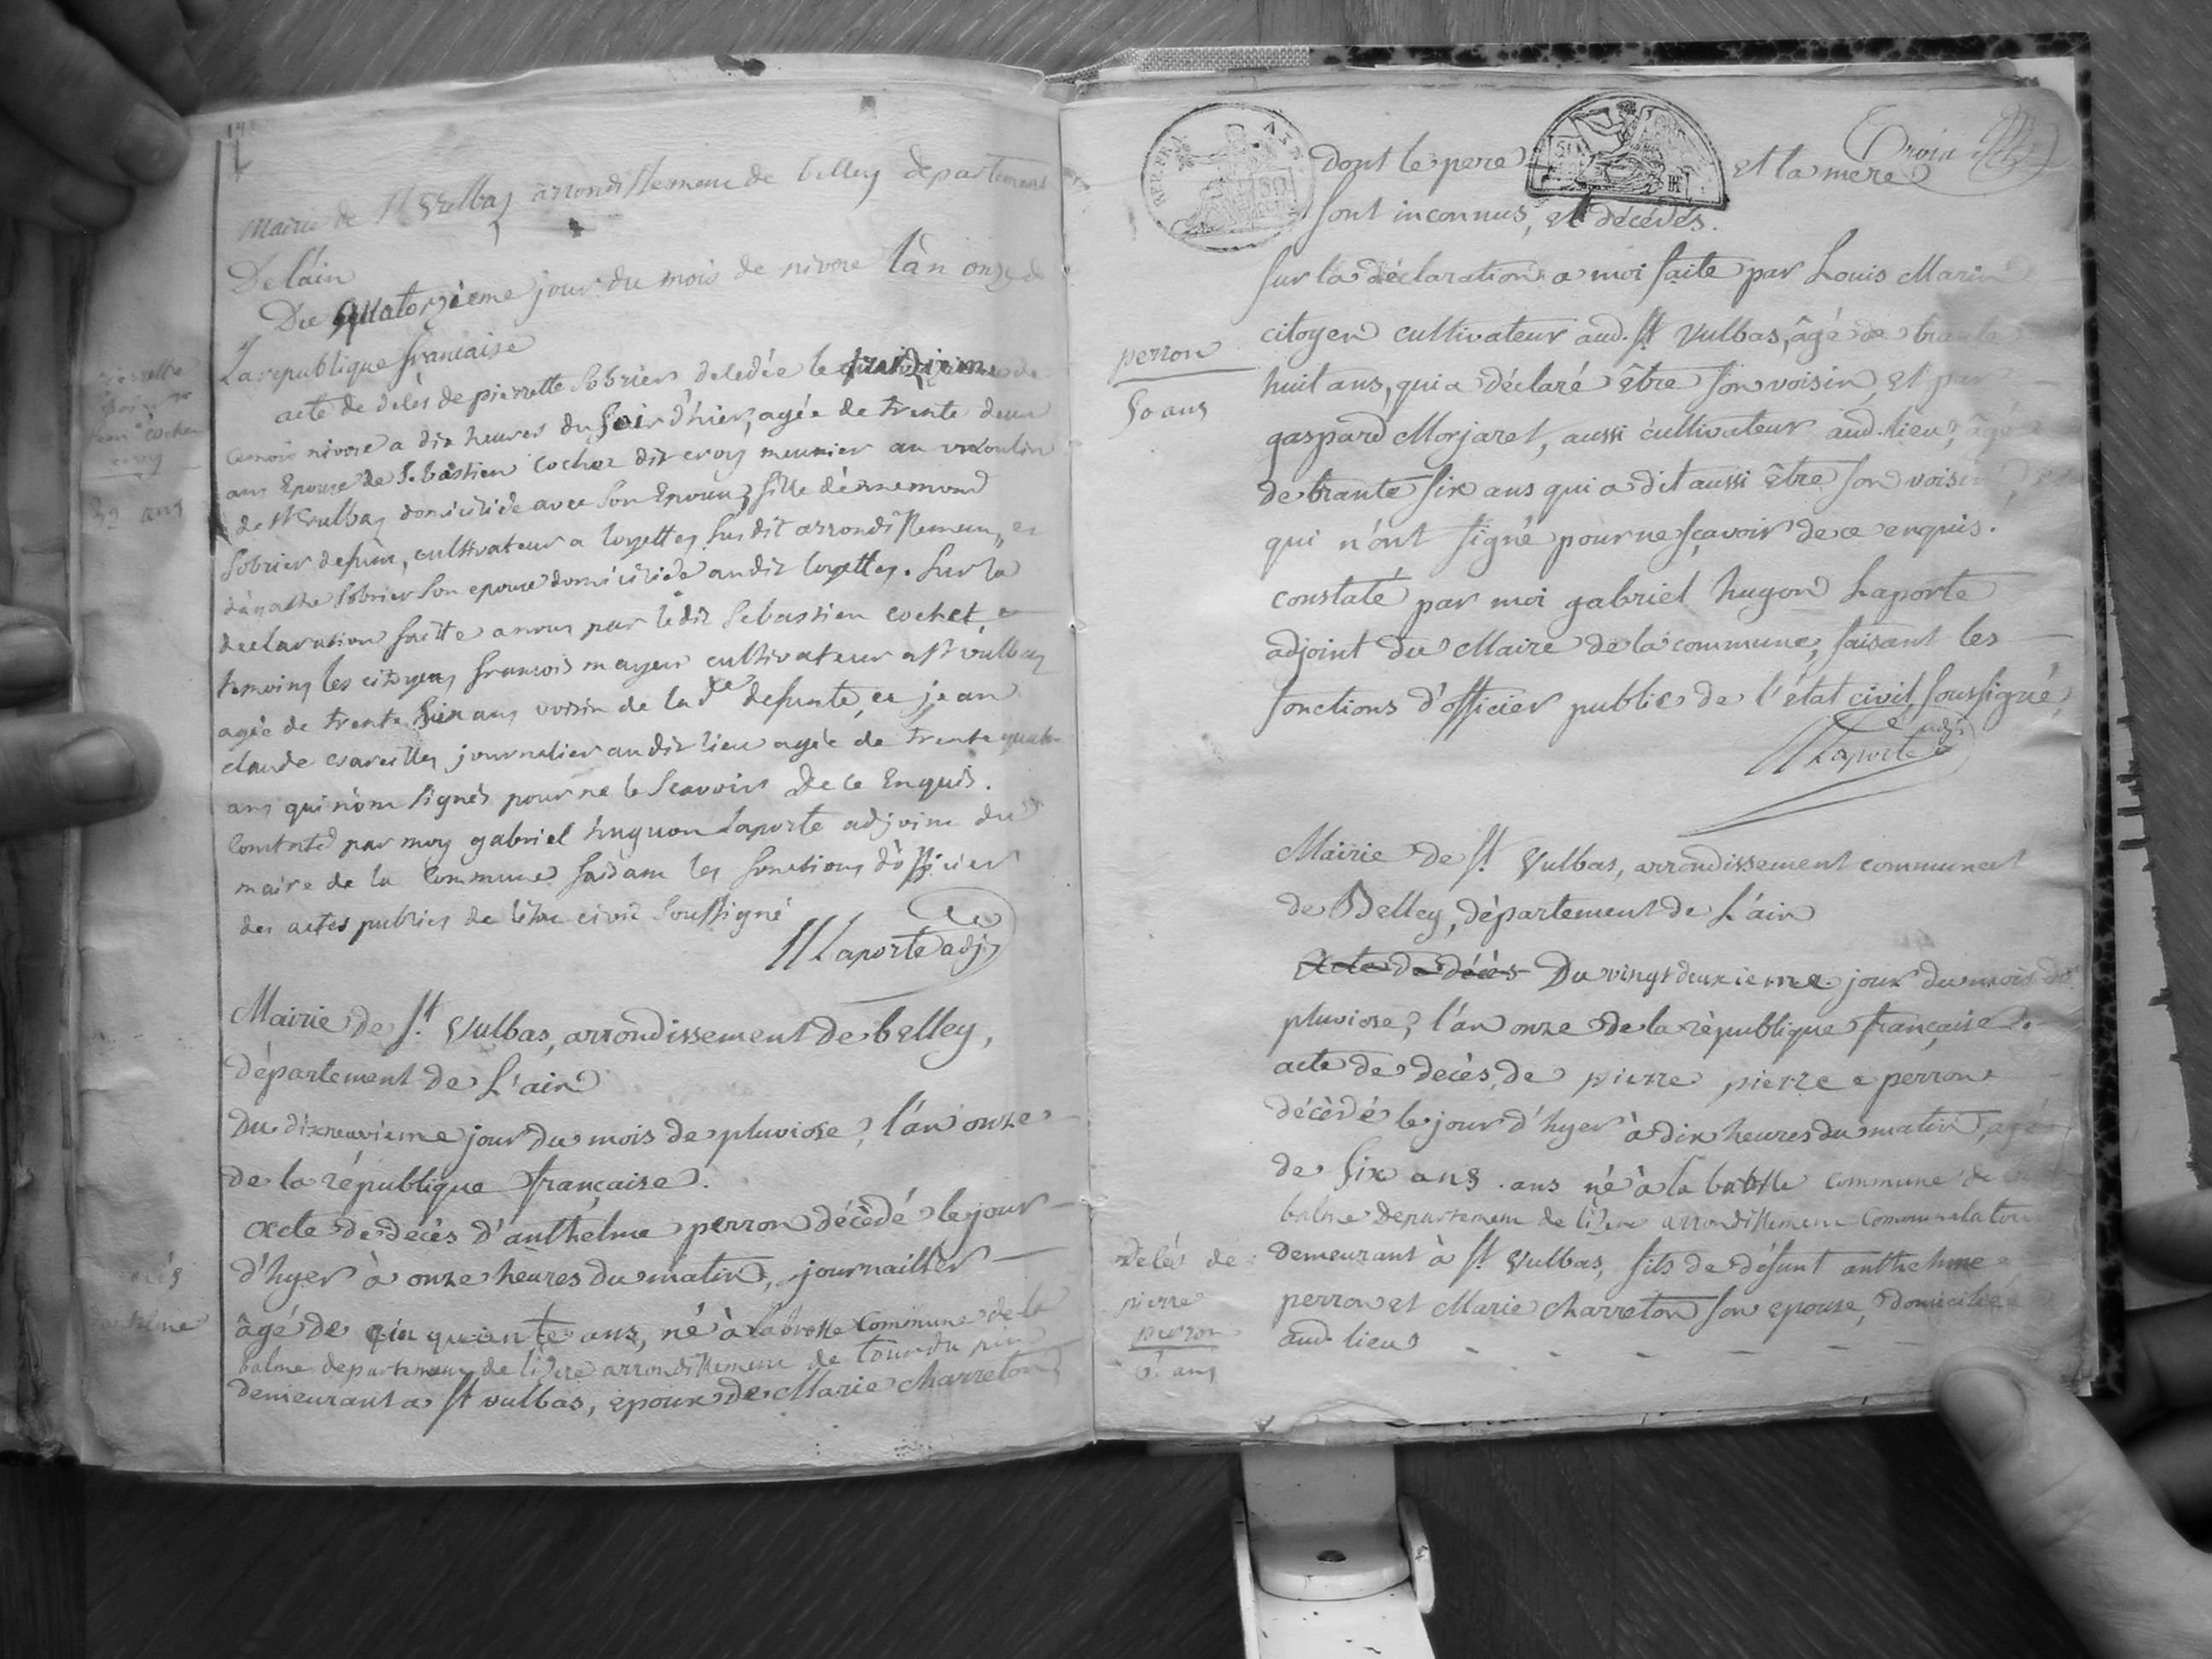 Mairie de St Vulbas arrondissement de belley departement
De l'ain
Du quatorzième jour du mois de nivose l'àn onze de
La republique francaise
acte de délès de pierrette Sobrier deledée le
ce mois nivose a dix heures du Soir d'hier, agée de trente deux
ans Epouse de Sebastien Cochet dit croy meunier au moulin
de St Vulbas domiciliée avec son Epoux, fille d'ennemond
Sobrier defunt, cultivateur a loyettes susdit arrondissement, et
d'agathe Sobrier Son epouse domiciliée audit loyettes. Sur la
declaration faitte a nous par ledit Sebastien cochet, et
temoins les citoyens francois mayeur cultivateur a St vulbas
agée de trente Six ans voisin de lad.te defunte, et jean
claude journalier audit lieu agée de trente quatre
ans qui n'ont Signés pour ne le Scavoir De ce Enquis.
Constaté par moy gabriel huguon laporte adjoint du
maire de la Commune faisant les fonctions d'officier
des actes publics de l'état civil Soussigné
Laporte adj
Mairie de St. Vulbas, arrondissement de belley,
département de L'ain
Du dixneuvieme jour du mois de pluviose, l'an onze
de la république française.
acte de decès d'anthelme perron décédé le jour
d'hyer à onze heures du matin, journaillier
âgé de cinquante ans, né à labrosse Commune de la
balme departement de l'isere arrondissement de tour du pin
demeurant a St vulbas, epoux de Marie charreton,
32 ans
dont le pere et la mere
Sont inconnus, et décédés.
Sur la déclaration a moi faite par Louis Marin
citoyen cultivateur aud. St Vulbas, âgé de trante
huit ans, qui a déclaré être son voisin, et par
gaspard Morjaret, aussi cultivateur aud. lieu, âgé
de trante six ans qui a dit aussi être son voisin,
qui n'ont signé pour ne sçavoir de ce enquis.
constaté par moi gabriel hugon Laporte
adjoint du Maire de la commune, faisant les
fonctions d'officier public de l'état civil soussigné,
Laporte adj
perron
50 ans
Mairie de St. Vulbas, arrondissement communal
de Belley, département de L'ain
Acte de décès Du vingt deuxieme jour du mois de
pluviose, l'an onze de la république française.
acte de decès, de pierre pierre perron
décédé le jour d'hyer à dix heures du matin, agé
de Six ans . ans né à la Commune de
balme Departement de l'isere arrondissement Communal
demeurant à St Vulbas, fils de défunt anthelme
perron et Marie charreton son epouse, domicilié
aud. lieu
delés de
pierre
perron
6. ans